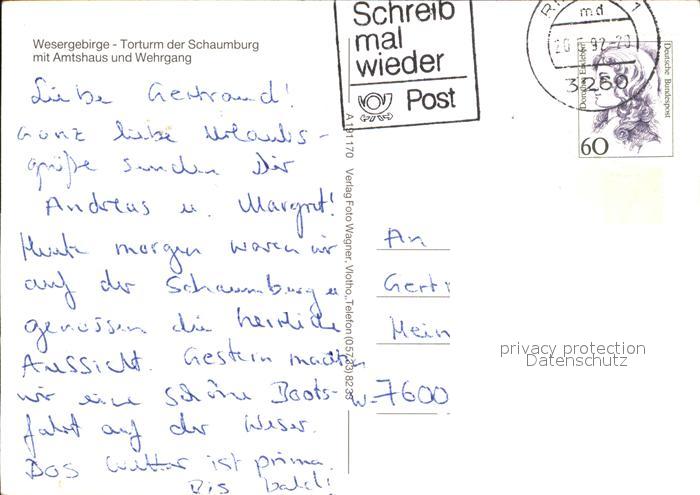 Wesergebirge - Torturm der Schaumburg
mit Amtshaus und Wehrgang
Liebe Gertraud!
Ganz liebe Urlaubs-
grüße senden Dir
Andreas u. Margret!
Heute morgen waren wir
auf der Schaumburg u
genossen die herrliche
Aussicht. Gestern machten
wir eine schöne Boots-
fahrt auf der Weser.
Das Wetter ist prima.
Bis bald!
A191170 Verlag Foto Wagner, Vlotho, Telefon (05733) 8235
Schreib
mal
wieder
Post
md
20.5.92-20
3260
Dorothea Erxleben
Deutsche Bundespost
60
An
Gert
Hein
W-7600
privacy protection
Datenschutz